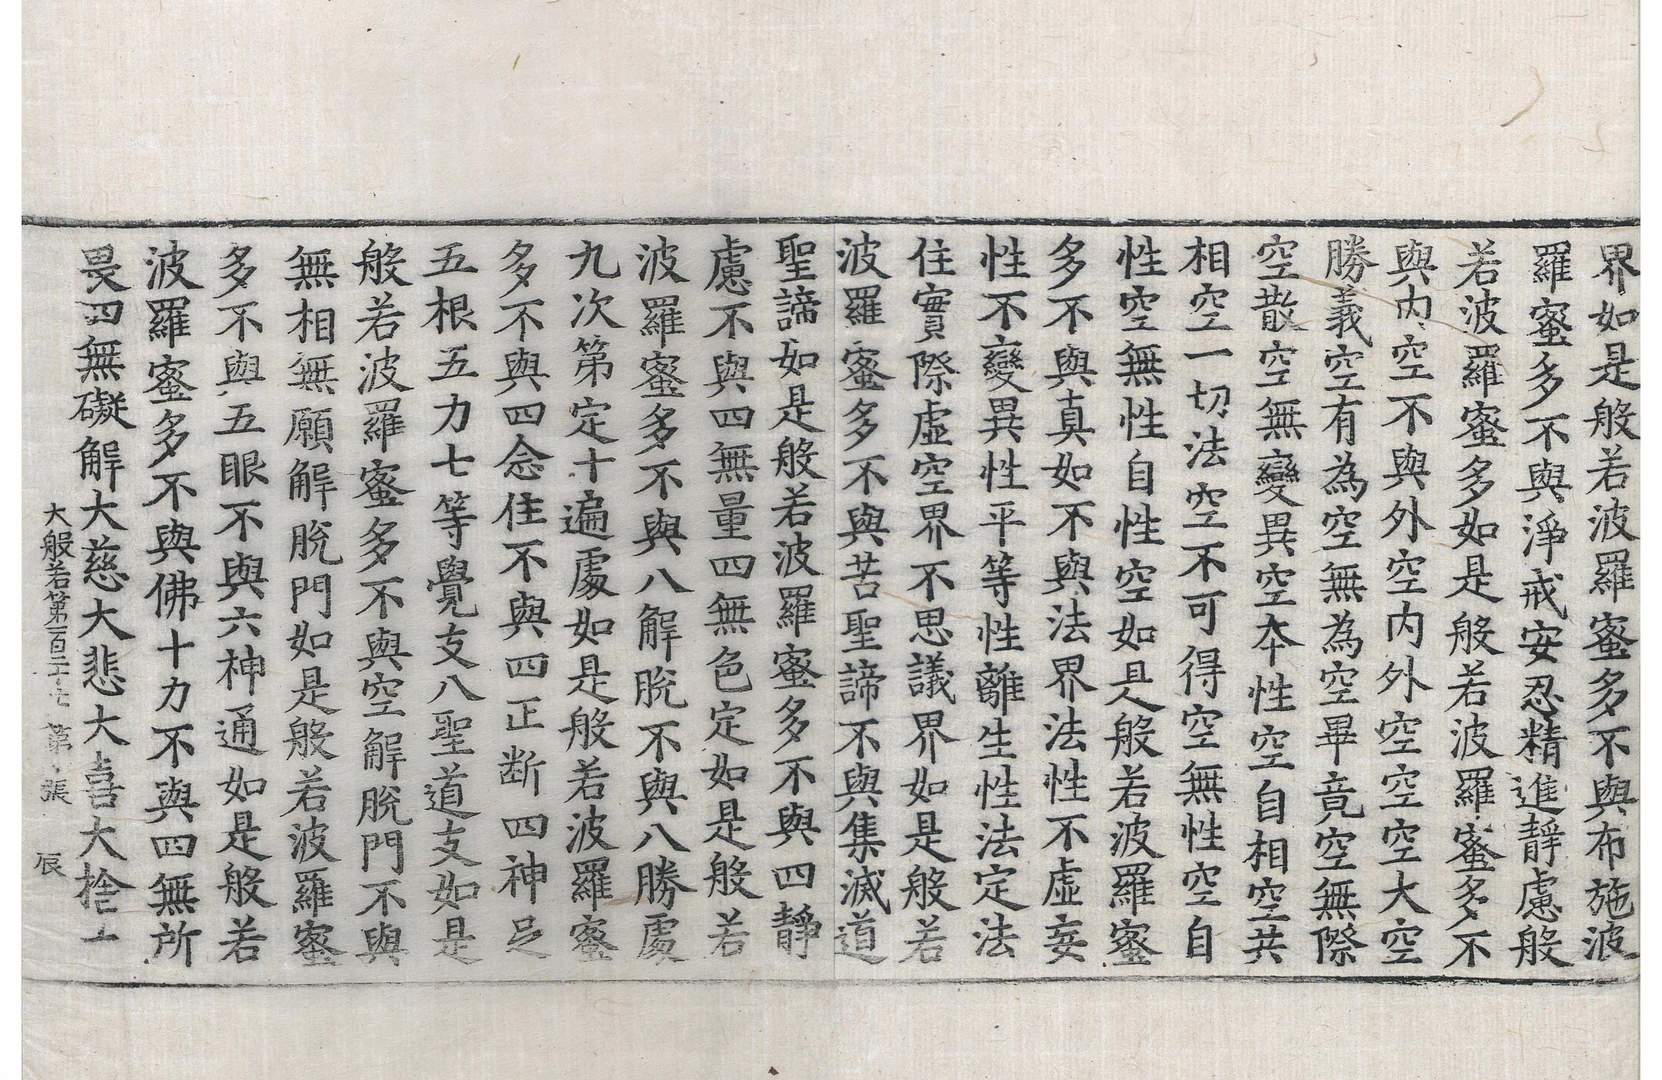 界如是般若波羅蜜多不與布施波
羅蜜多不與淨戒安忍精進靜慮般
若波羅蜜多如是般若波羅蜜多不
與内空不與外空内外空空空大空
勝義空有為空無為空畢竟空無際
空散空無變異空本性空自相空共
相空一切法空不可得空無性空自
性空無性自性空如是般若波羅蜜
多不與真如不與法界法性不虛妄
性不變異性平等性離生性法定法
住實際虛空界不思議界如是般若
波羅蜜多不與苦聖諦不與集滅道
聖諦如是般若波羅蜜多不與四靜
慮不與四無量四無色定如是般若
波羅蜜多不與八解脫不與八勝處
九次第定十遍處如是般若波羅蜜
多不與四念住不與四正断四神足
五根五力七等覺支八聖道支如是
般若波羅蜜多不與空解脫門不與
無相無願解脫門如是般若波羅蜜
多不與五眼不與六神通如是般若
波羅蜜多不與佛十力不與四無所
畏四無礙解大慈大悲大喜大捨
大般若第一百二十七 第 張 辰